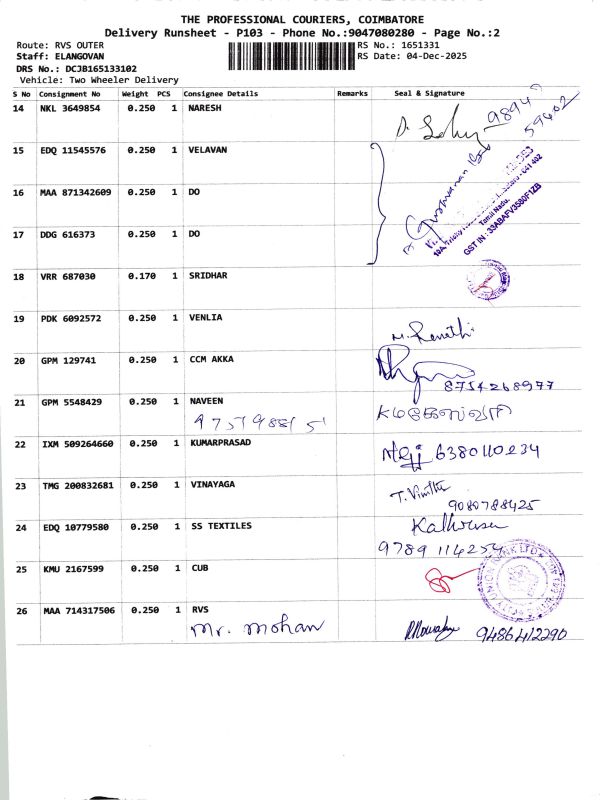 THE PROFESSIONAL COURIERS, COIMBATORE
Delivery Runsheet - P103 - Phone No.:9047080280 - Page No.:2
Route: RVS OUTER RS No.: 1651331
Staff: ELANGOVAN RS Date: 04-Dec-2025
DRS No.: DCJB165133102
Vehicle: Two Wheeler Delivery
S No Consignment No Weight PCS Consignee Details Remarks Seal & Signature
14 NKL 3649854 0.250 1 NARESH
98947
59402
15 EDQ 11545576 0.250 1 VELAVAN
16 MAA 871342609 0.250 1 DO
Tamil Nadu.
GST IN : 33ABAFV3580F1ZB
17 DDG 616373 0.250 1 DO
18 VRR 687030 0.170 1 SRIDHAR
19 PDK 6092572 0.250 1 VENLIA
20 GPM 129741 0.250 1 CCM AKKA
8754268977
21 GPM 5548429 0.250 1 NAVEEN
22 IXM 509264660 0.250 1 KUMARPRASAD
6380110234
23 TMG 200832681 0.250 1 VINAYAGA
T. Vinitha
9080788425
24 EDQ 10779580 0.250 1 SS TEXTILES
9789 114254
25 KMU 2167599 0.250 1 CUB
CITY UNION BANK LTD
26 MAA 714317506 0.250 1 RVS
Mr. Mohan 9486412290